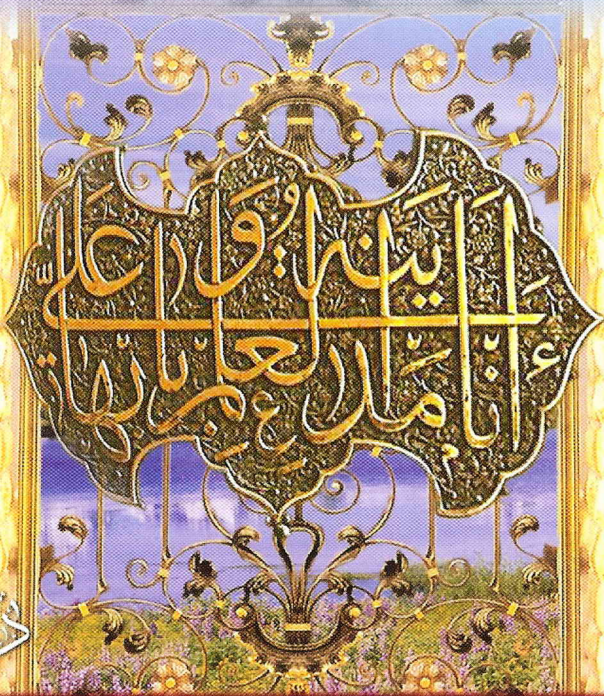 أنا مدينة العلم وعلي بابها